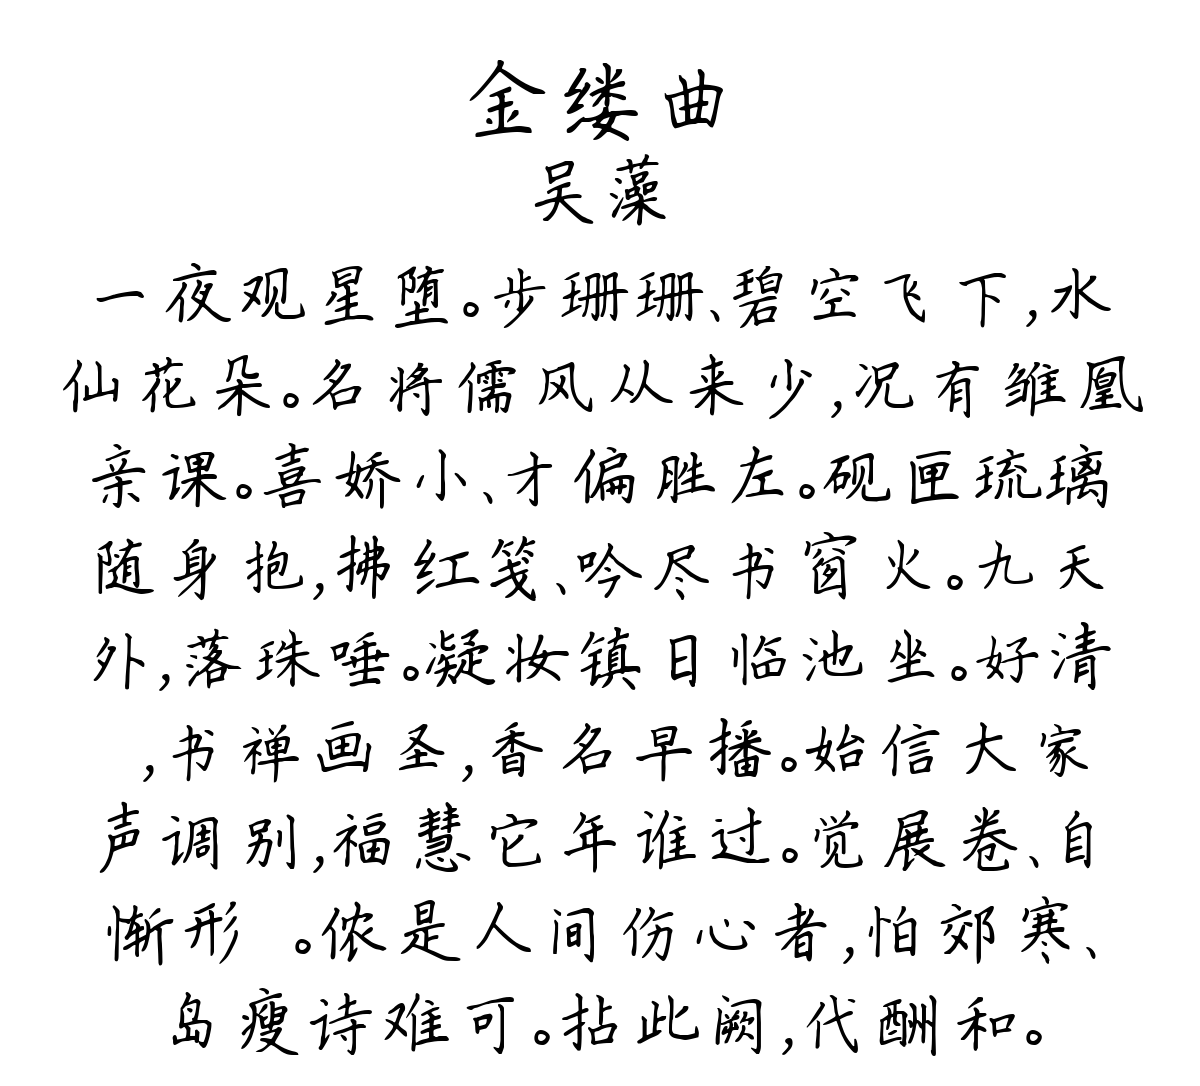 金缕曲
吴藻
一夜观星堕。步珊珊、碧空飞下,水
仙花朵。名将儒风从来少,况有雏凰
亲课。喜娇小、才偏胜左。砚匣琉璃
随身抱,拂红笺、吟尽书窗火。九天
外,落珠唾。凝妆镇日临池坐。好清
,书禅画圣,香名早播。始信大家
声调别,福慧它年谁过。觉展卷、自
惭形 。侬是人间伤心者,怕郊寒、
岛瘦诗难可。拈此阙,代酬和。